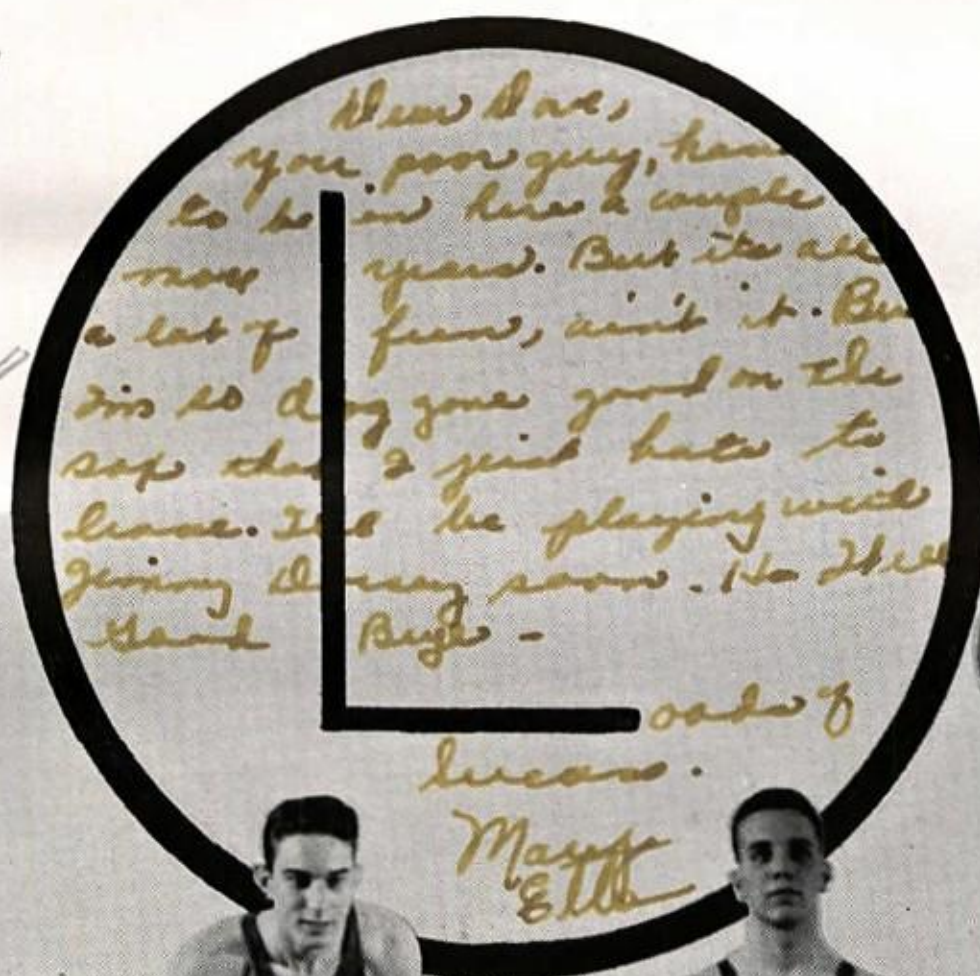 Dear Dave,
you poor guy, have
to be in here a couple
more years. But it's all
a lot of fun, ain't it. But
I'm so dog gone good on the
sax that I just hate to
leave. I'll be playing with
Jimmy Dorsey soon. Ha
Good Bye -
Loads of